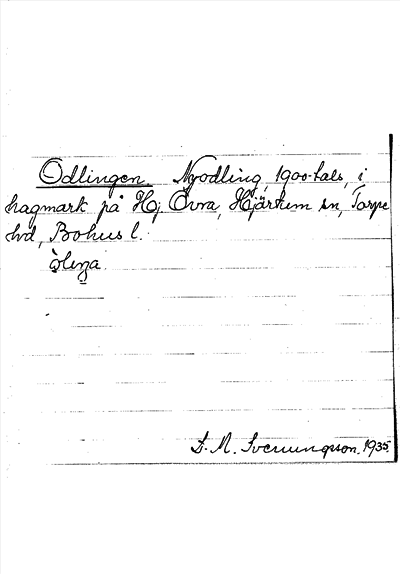 Odlingen. Nyodling, 1900-tals, i
hagmark på Hj. Övra, Hjärtum sn, Torpe
hd, Bohus l.
S. M. Svenungsson. 1935.